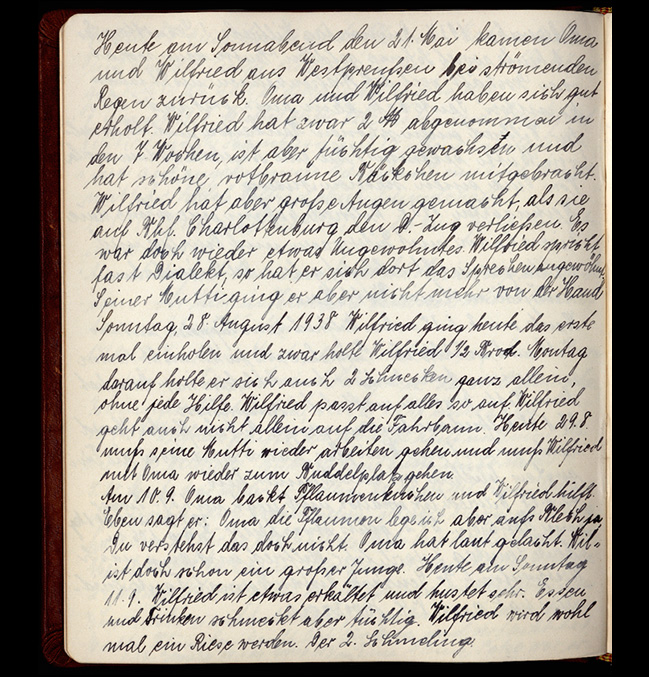 Heute am Sonnabend den 21. Mai kamen Oma
und Wilfried aus Westpreußen bei strömenden
Regen zurück. Oma und Wilfried haben sich gut
erholt. Wilfried hat zwar 2 ℔ abgenommen in
den 7 Wochen, ist aber tüchtig gewachsen und
hat schöne, rotbraune Bäckchen mitgebracht.
Wilfried hat aber große Augen gemacht, als sie
auf Bhf. Charlottenburg den D.-Zug verließen. Es
war doch wieder etwas Ungewohntes. Wilfried spricht
fast Dialekt, so hat er sich dort das Sprechen angewöhnt.
Seiner Mutti ging er aber nicht mehr von der Hand
Sonntag, 28. August 1938 Wilfried ging heute das erste
mal einholen und zwar holte Wilfried 1/2 Brod. Montag
darauf holte er sich auch 2 Schnecken ganz allein,
ohne jede Hilfe. Wilfried passt auf alles so auf. Wilfried
geht auch nicht allein auf die Fahrbann. Heute 29.8.
muß seine Mutti wieder arbeiten gehen und muß Wilfried
mit Oma wieder zum Buddelplatz gehen.
Am 10.9. Oma backt Pflaumenkuchen und Wilfried hilft.
Eben sagt er: Oma die Pflaumen leg ich aber aufs Blech ja
Du verstehst das doch nicht. Oma hat laut gelacht. Wil-
ist doch schon ein großer Junge. Heute am Sonntag
11.9. Wilfried ist etwas erkältet und hustet sehr. Essen
und Trinken schmeckt aber tüchtig. Wilfried wird wohl
mal ein Riese werden. Der 2. Schmeling.